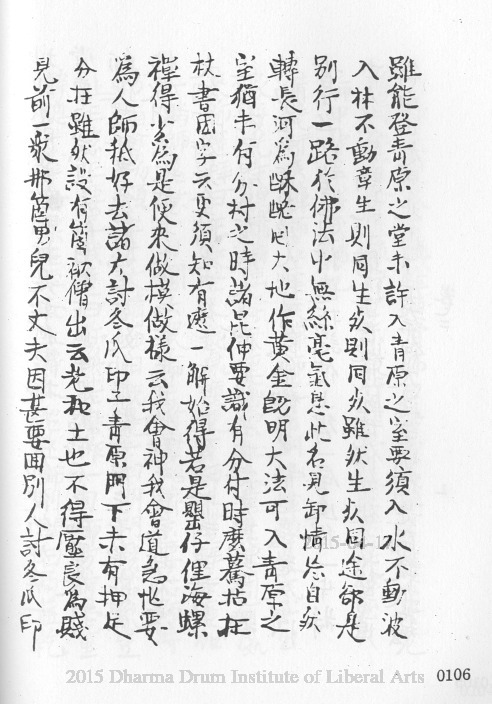 雖能登青原之堂未許入青原之室要須入水不動波
入林不動草生則同生死則同死雖然生死同途卻是
別行一路於佛法中無絲毫氣息此名見卸情忘自然
轉長河為酥酪變大地作黃金既明大法可入青原之
室猶未有分付之時諸昆仲要識有分付時麼驀拈拄
杖書圓字云更須知有遮一解始得若是罌仔俚海螺
禪得少為是便來做模做樣云我會神我會道急忙要
為人師秪好去諸方討冬瓜印子青原門下未有押足
分在雖然設有箇衲僧出云老和土也不得壓良為賤
見前一眾那箇男兒不丈夫因甚要囬別人討冬瓜印
2015 Dharma Drum Institute of Liberal Arts
0106